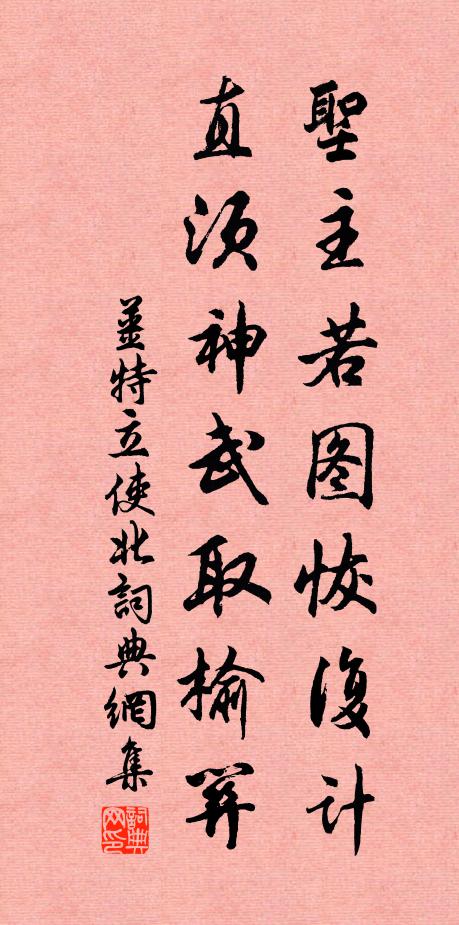 聖主若图恢復计
直须神武取榆關
姜特立使北詞典網集
詞典网印